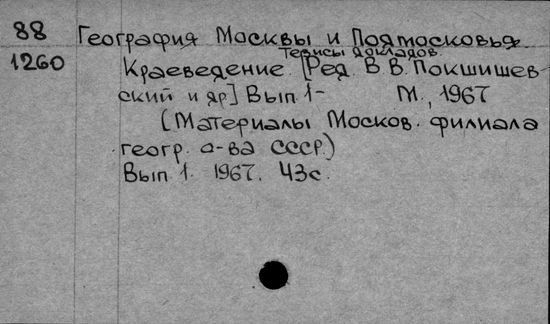 88 География Москвы и Подмосковья.
Тезисы докладов.
1260 Краеведение. [Ред. В В. Покшишев
ский и др] Вып 1- М., 1967
(Материалы Москов. филиала
геогр. о-ва СССР.)
Вып 1. 1967. 43с.